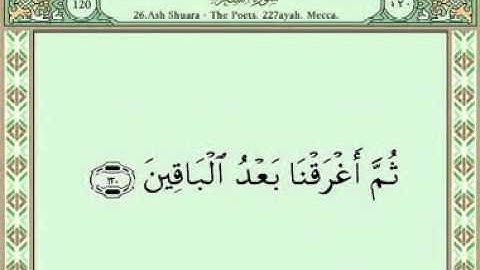 120 26.Ash Shuara - The Poets. 227ayah. Mecca. ١٢٠
ثُمَّ أَغْرَقْنَا بَعْدُ الْبَاقِينَ ١٢٠